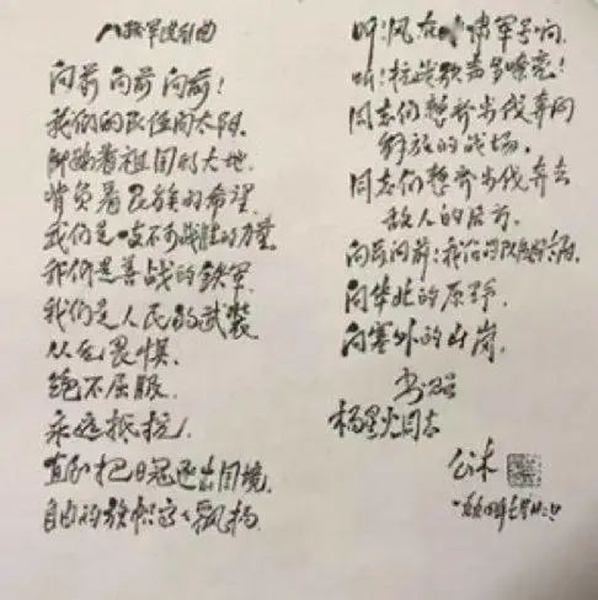 八路军进行曲
向前 向前 向前!
我们的队伍向太阳.
脚踏着祖国的大地.
背负着民族的希望.
我们是一支不可战胜的力量.
我们是善战的铁军
我们是人民的武装
从无畏惧.
绝不屈服.
永远抵抗!
直到把日寇逐出国境.
自由的旗帜高々飘扬.
听!风在 啸军号响.
听!抗战歌声多嘹亮!
同志们整齐步伐奔向
解放的战场.
同志们整齐步伐奔去
敌人的后方.
向前向前!我们的队伍向太阳.
向华北的原野.
向塞外的山岗.
书赠
杨星火同志
公木
一九